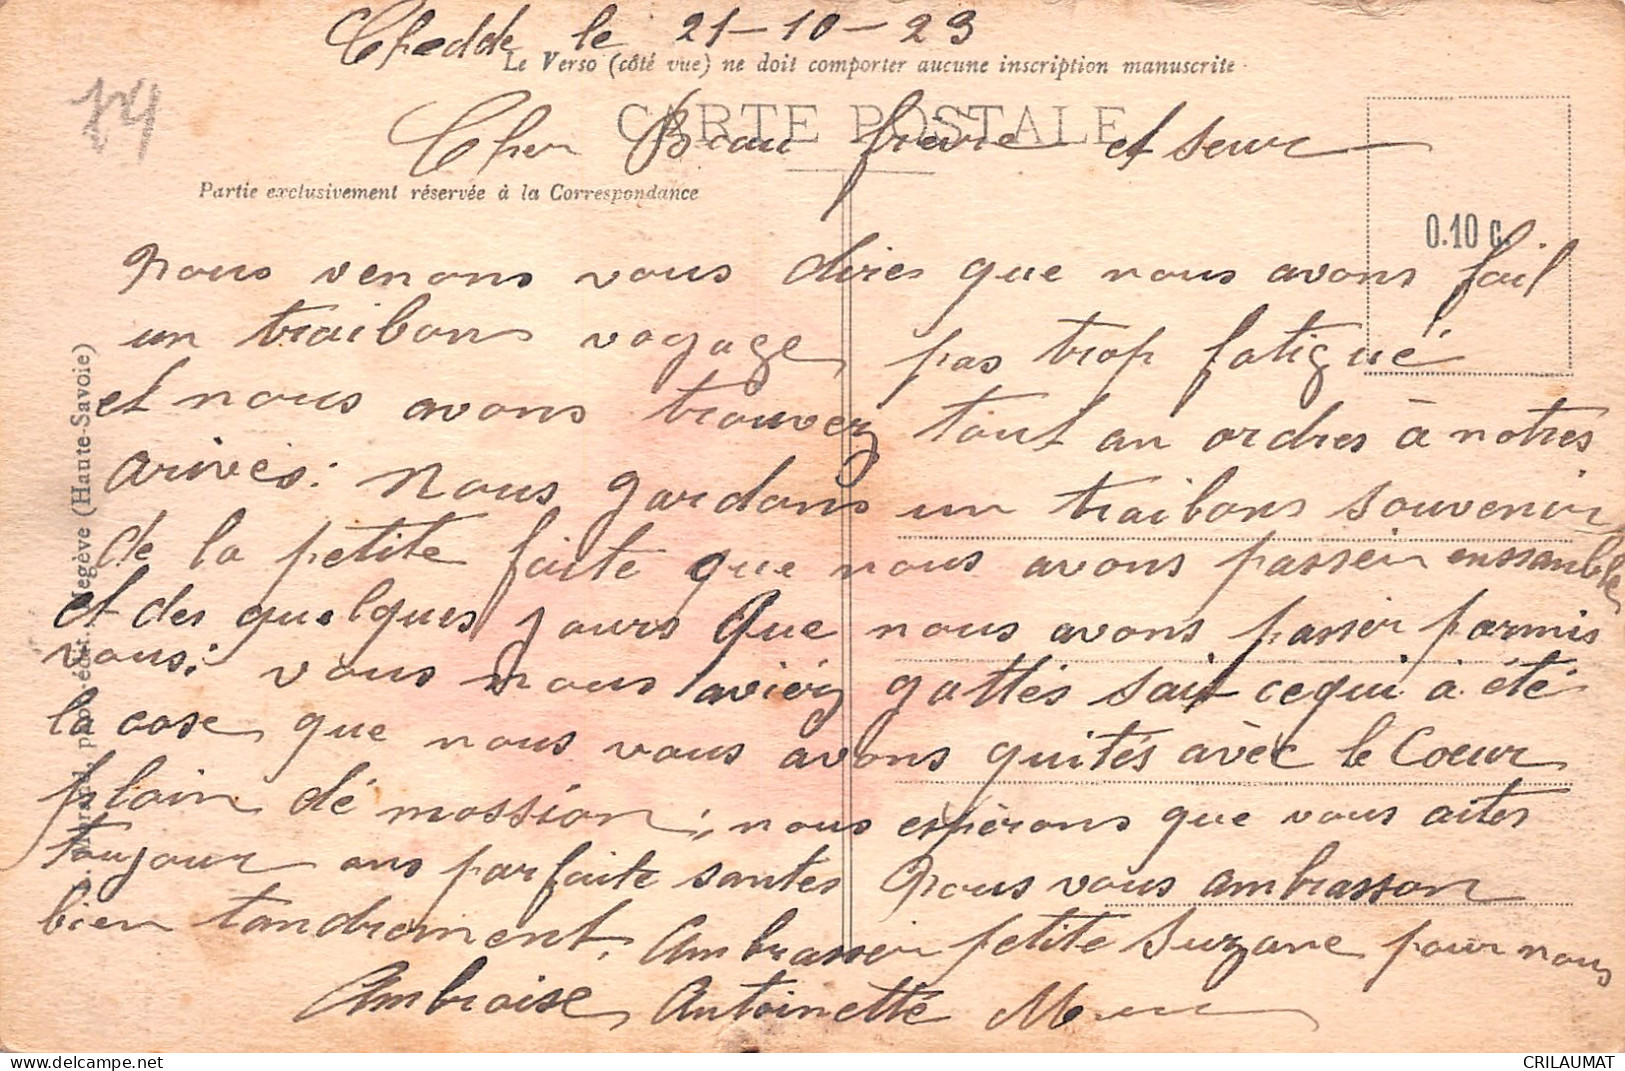 Chedde le 21-10-23
Le Verso (côté vue) ne doit comporter aucune inscription manuscrite
74
CARTE POSTALE
Cher Beau frère et seur
Partie exclusivement réservée à la Correspondance
0.10 c.
nous venons vous dires que nous avons fait
un traibons voyage, pas trop fatigué
et nous avons trouvez tout an ordres à notres
arives: Nous gardons un traibons souvenir
de la petite faite que nous avons passer enssamble
et des quelques jours que nous avons passer parmis
vous: vous nous aviéz gattés sait cequi à été
la cose que nous vous avons quités avèc le Coeur
plain dé mossion; nous espèrons que vous aites
toujour ans parfaite santes Nous vous ambrasson
bien tandrement. Ambrasser petite Suzane pour nous
Ambroise Antoinetté
phot. édit. Megève (Haute-Savoie)
CRILAUMAT